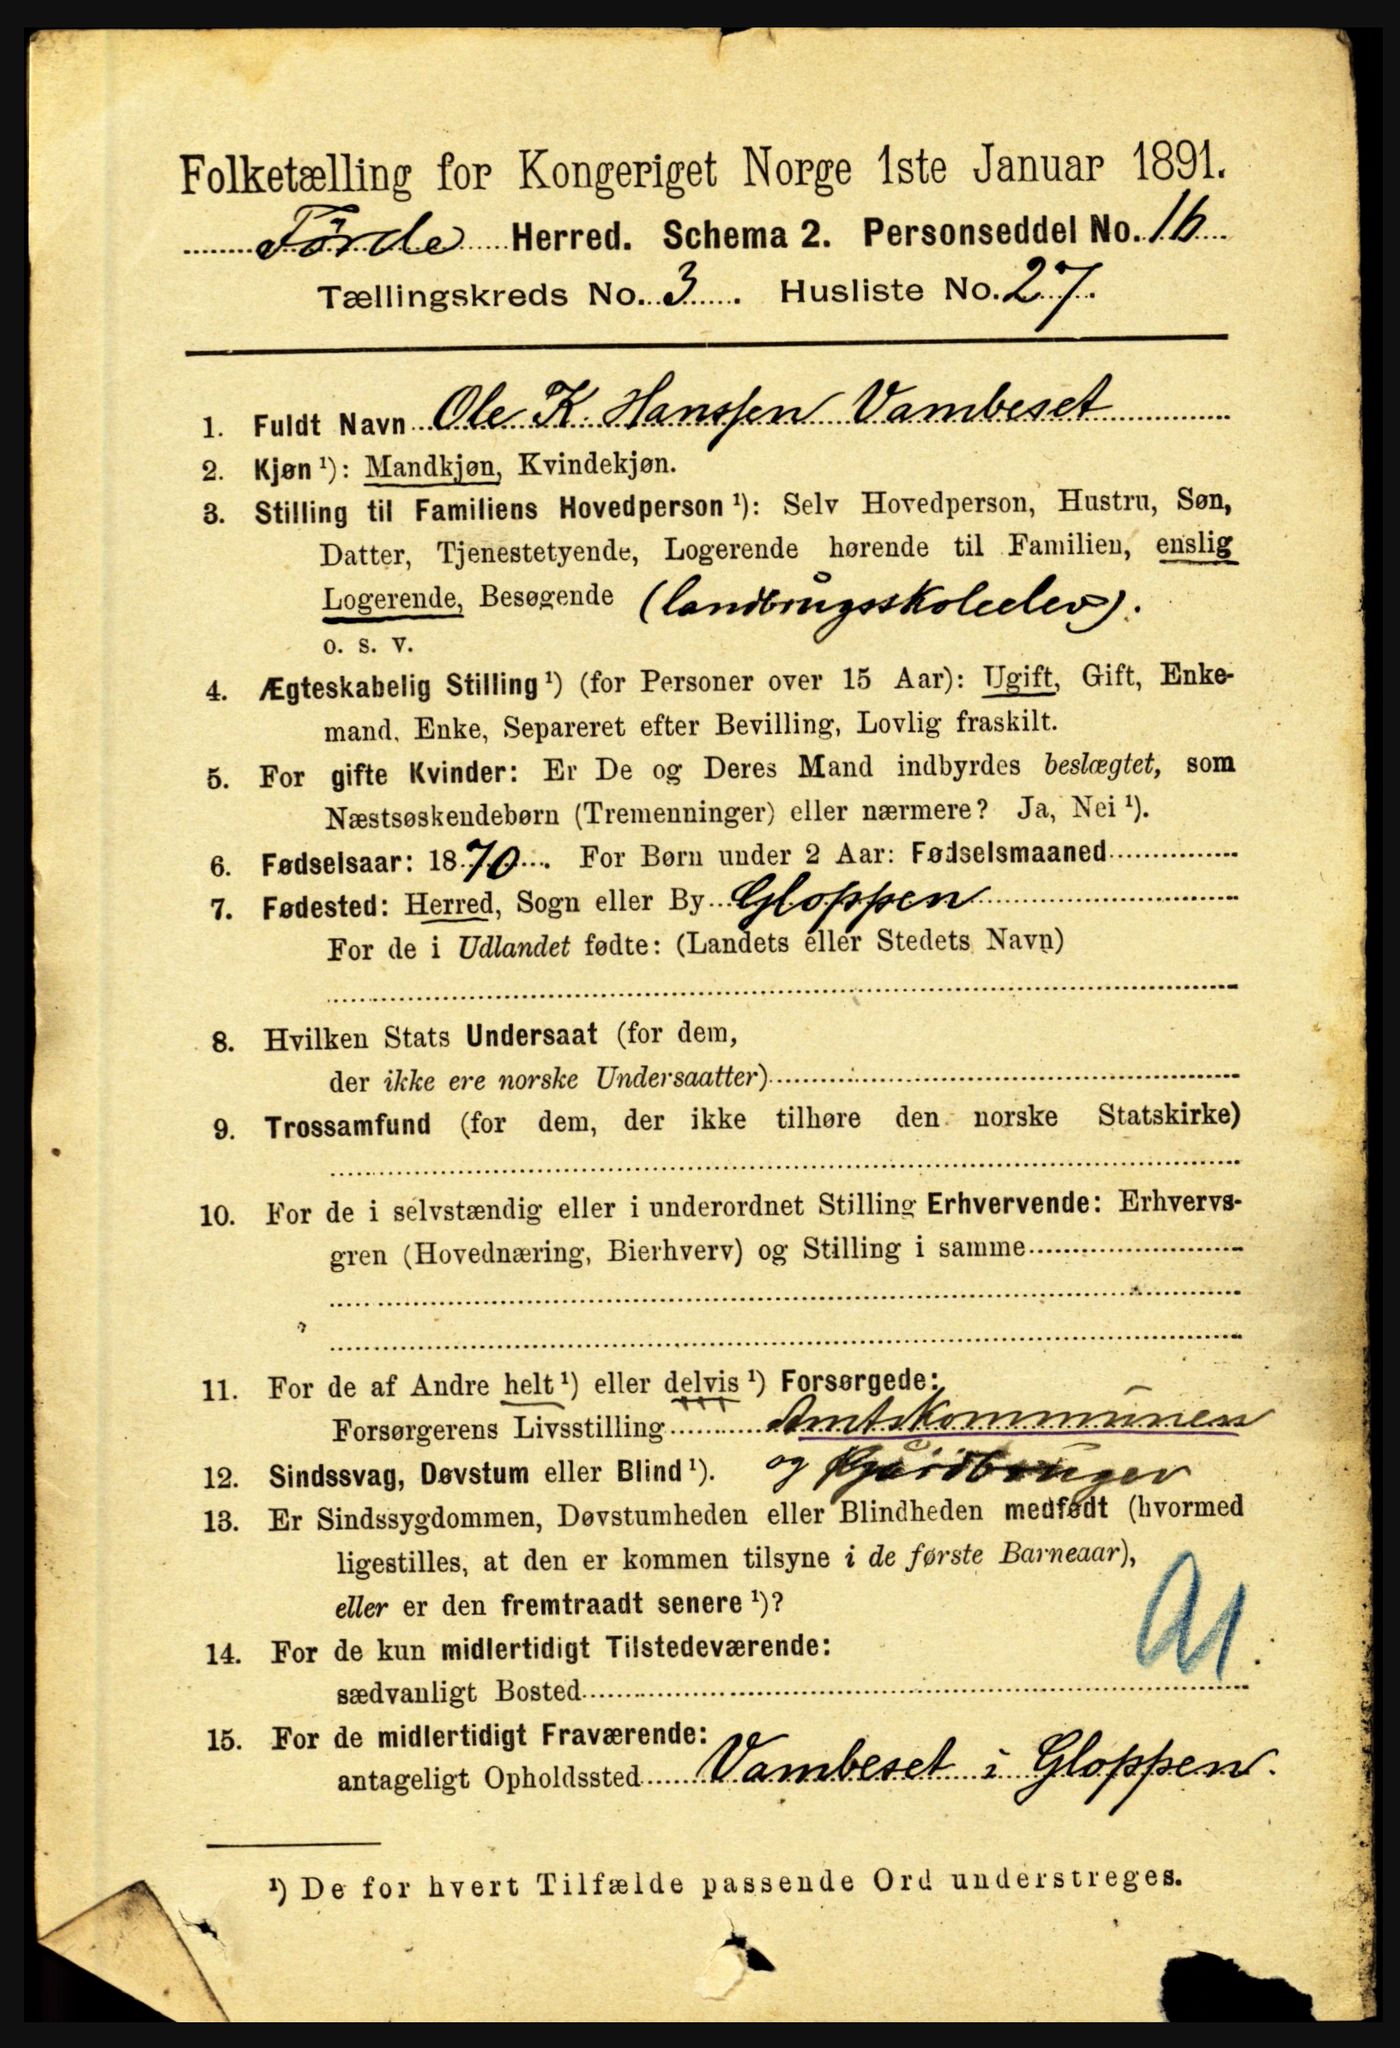 Folketælling for Kongeriget Norge 1ste Januar 1891.
Førde Herred. Schema 2. Personseddel No. 16
Tællingskreds No. 3. Husliste No. 27.
1. Fuldt Navn Ole K. Hanssen Vambeset
2. Kjøn ¹): Mandkjøn, Kvindekjøn.
3. Stilling til Familiens Hovedperson ¹): Selv Hovedperson, Hustru, Søn,
Datter, Tjenestetyende, Logerende hørende til Familien, enslig
Logerende, Besøgende (landbrugsskoleelev).
o. s. v.
4. Ægteskabelig Stilling ¹) (for Personer over 15 Aar): Ugift, Gift, Enke-
mand, Enke, Separeret efter Bevilling, Lovlig fraskilt.
5. For gifte Kvinder: Er De og Deres Mand indbyrdes beslægtet, som
Næstsøskendebørn (Tremenninger) eller nærmere? Ja, Nei ¹).
6. Fødselsaar: 1870. For Børn under 2 Aar: Fødselsmaaned
7. Fødested: Herred, Sogn eller By Gloppen
For de i Udlandet fødte: (Landets eller Stedets Navn)
8. Hvilken Stats Undersaat (for dem,
der ikke ere norske Undersaatter)
9. Trossamfund (for dem, der ikke tilhøre den norske Statskirke)
10. For de i selvstændig eller i underordnet Stilling Erhvervende: Erhvervs-
gren (Hovednæring, Bierhverv) og Stilling i samme
11. For de af Andre helt ¹) eller delvis ¹) Forsørgede:
Forsørgerens Livsstilling Amtskommunen
12. Sindssvag, Døvstum eller Blind ¹). og Gårdbruger
13. Er Sindssygdommen, Døvstumheden eller Blindheden medfødt (hvormed
ligestilles, at den er kommen tilsyne i de første Barneaar),
eller er den fremtraadt senere ¹)?
14. For de kun midlertidigt Tilstedeværende:
sædvanligt Bosted
15. For de midlertidigt Fraværende:
antageligt Opholdssted Vambeset i Gloppen.
¹) De for hvert Tilfælde passende Ord understreges.